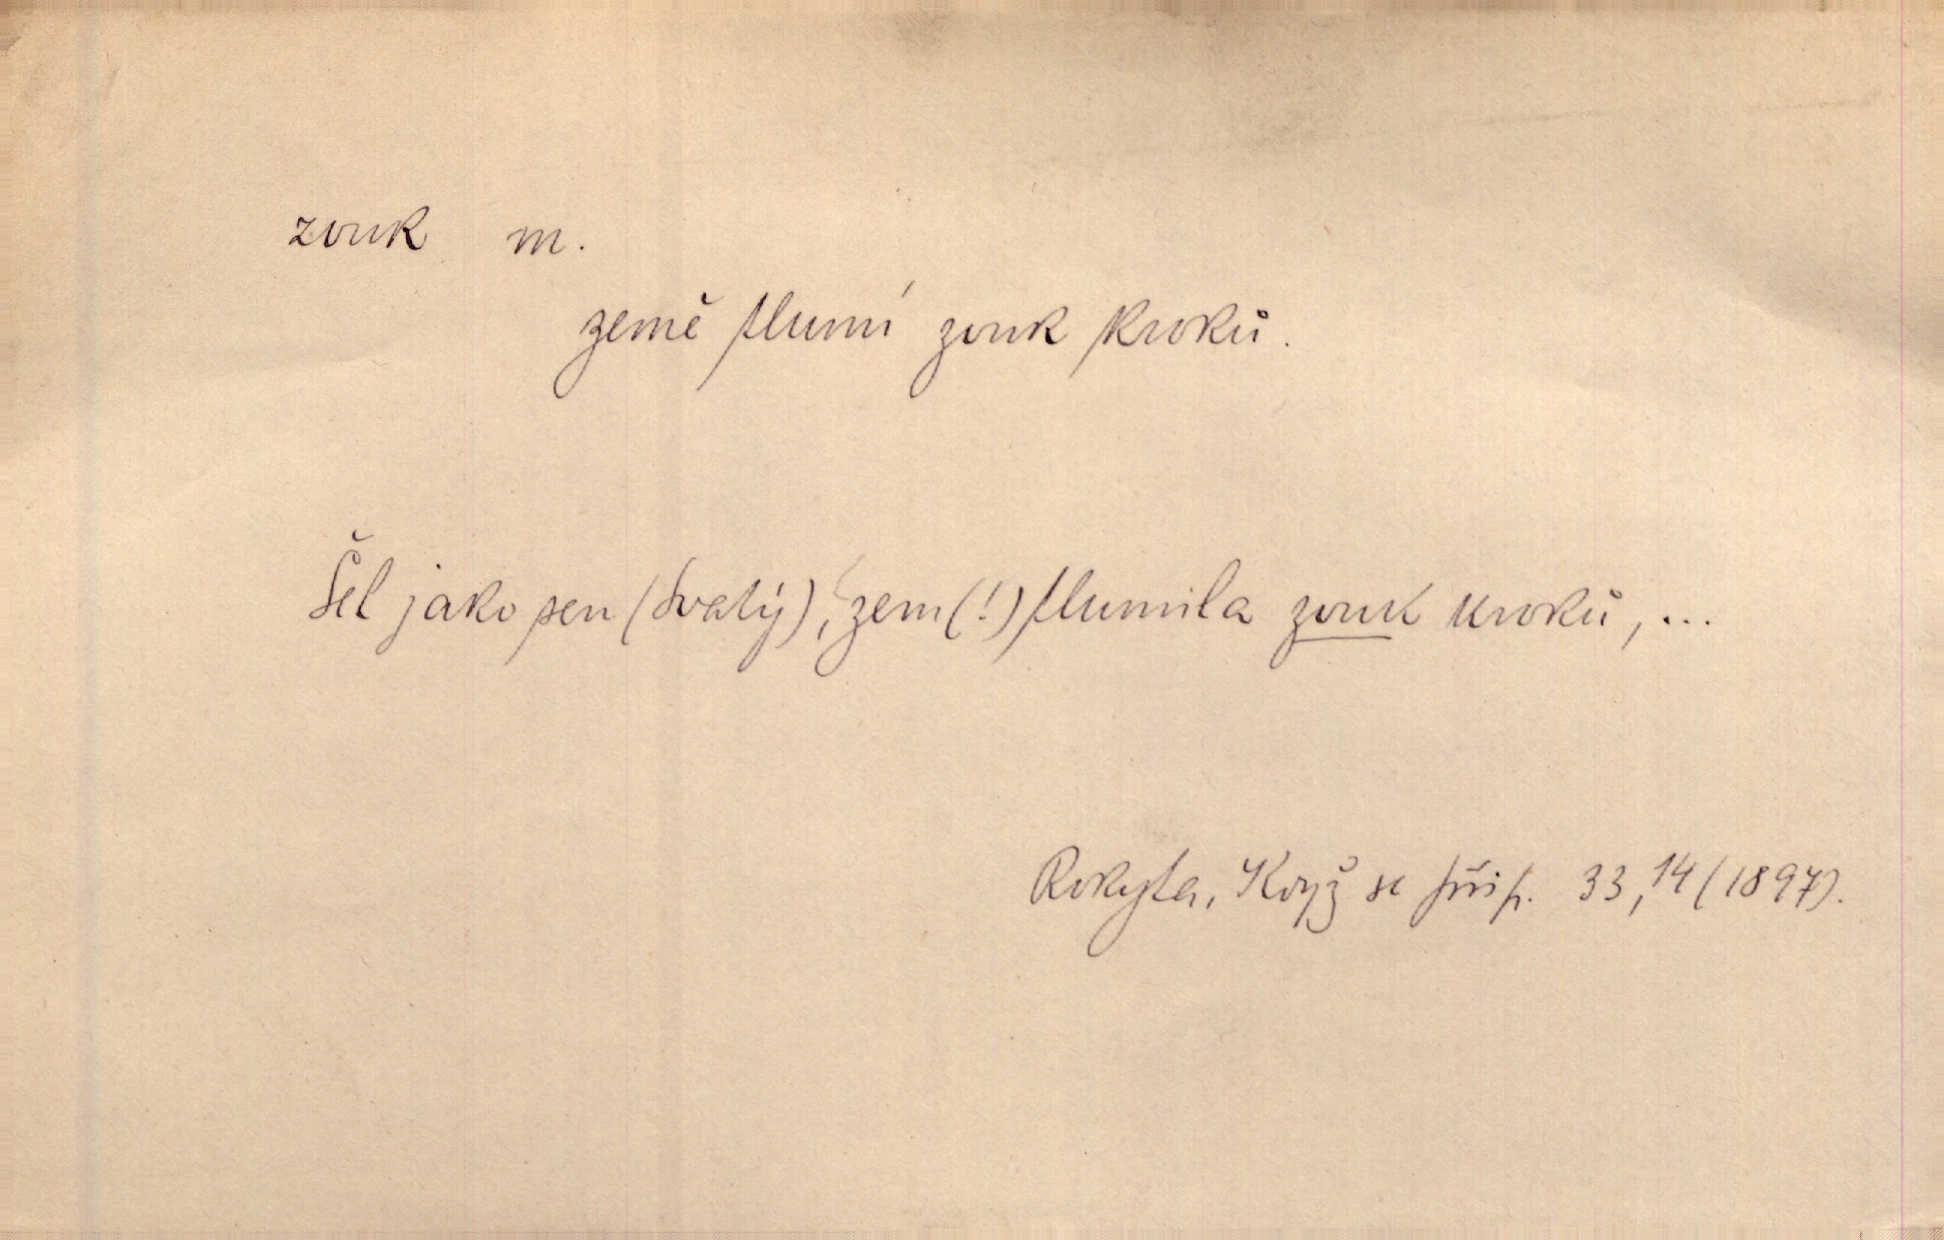 zvuk m.
země tlumí zvuk kroků.
Šel jako sen (svatý), zem (!) tlumila zvuk kroků, ...
Rokyta, Když se přip. 33,14 (1897).